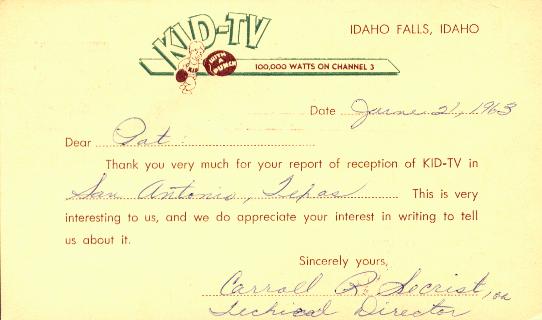 KID-TV
IDAHO FALLS, IDAHO
WITH A PUNCH
100,000 WATTS ON CHANNEL 3
Date June 21, 1963
Dear Pat:
Thank you very much for your report of reception of KID-TV in
San Antonio, Texas This is very
interesting to us, and we do appreciate your interest in writing to tell
us about it.
Sincerely yours,
Carroll R. Secrist
Techical Director